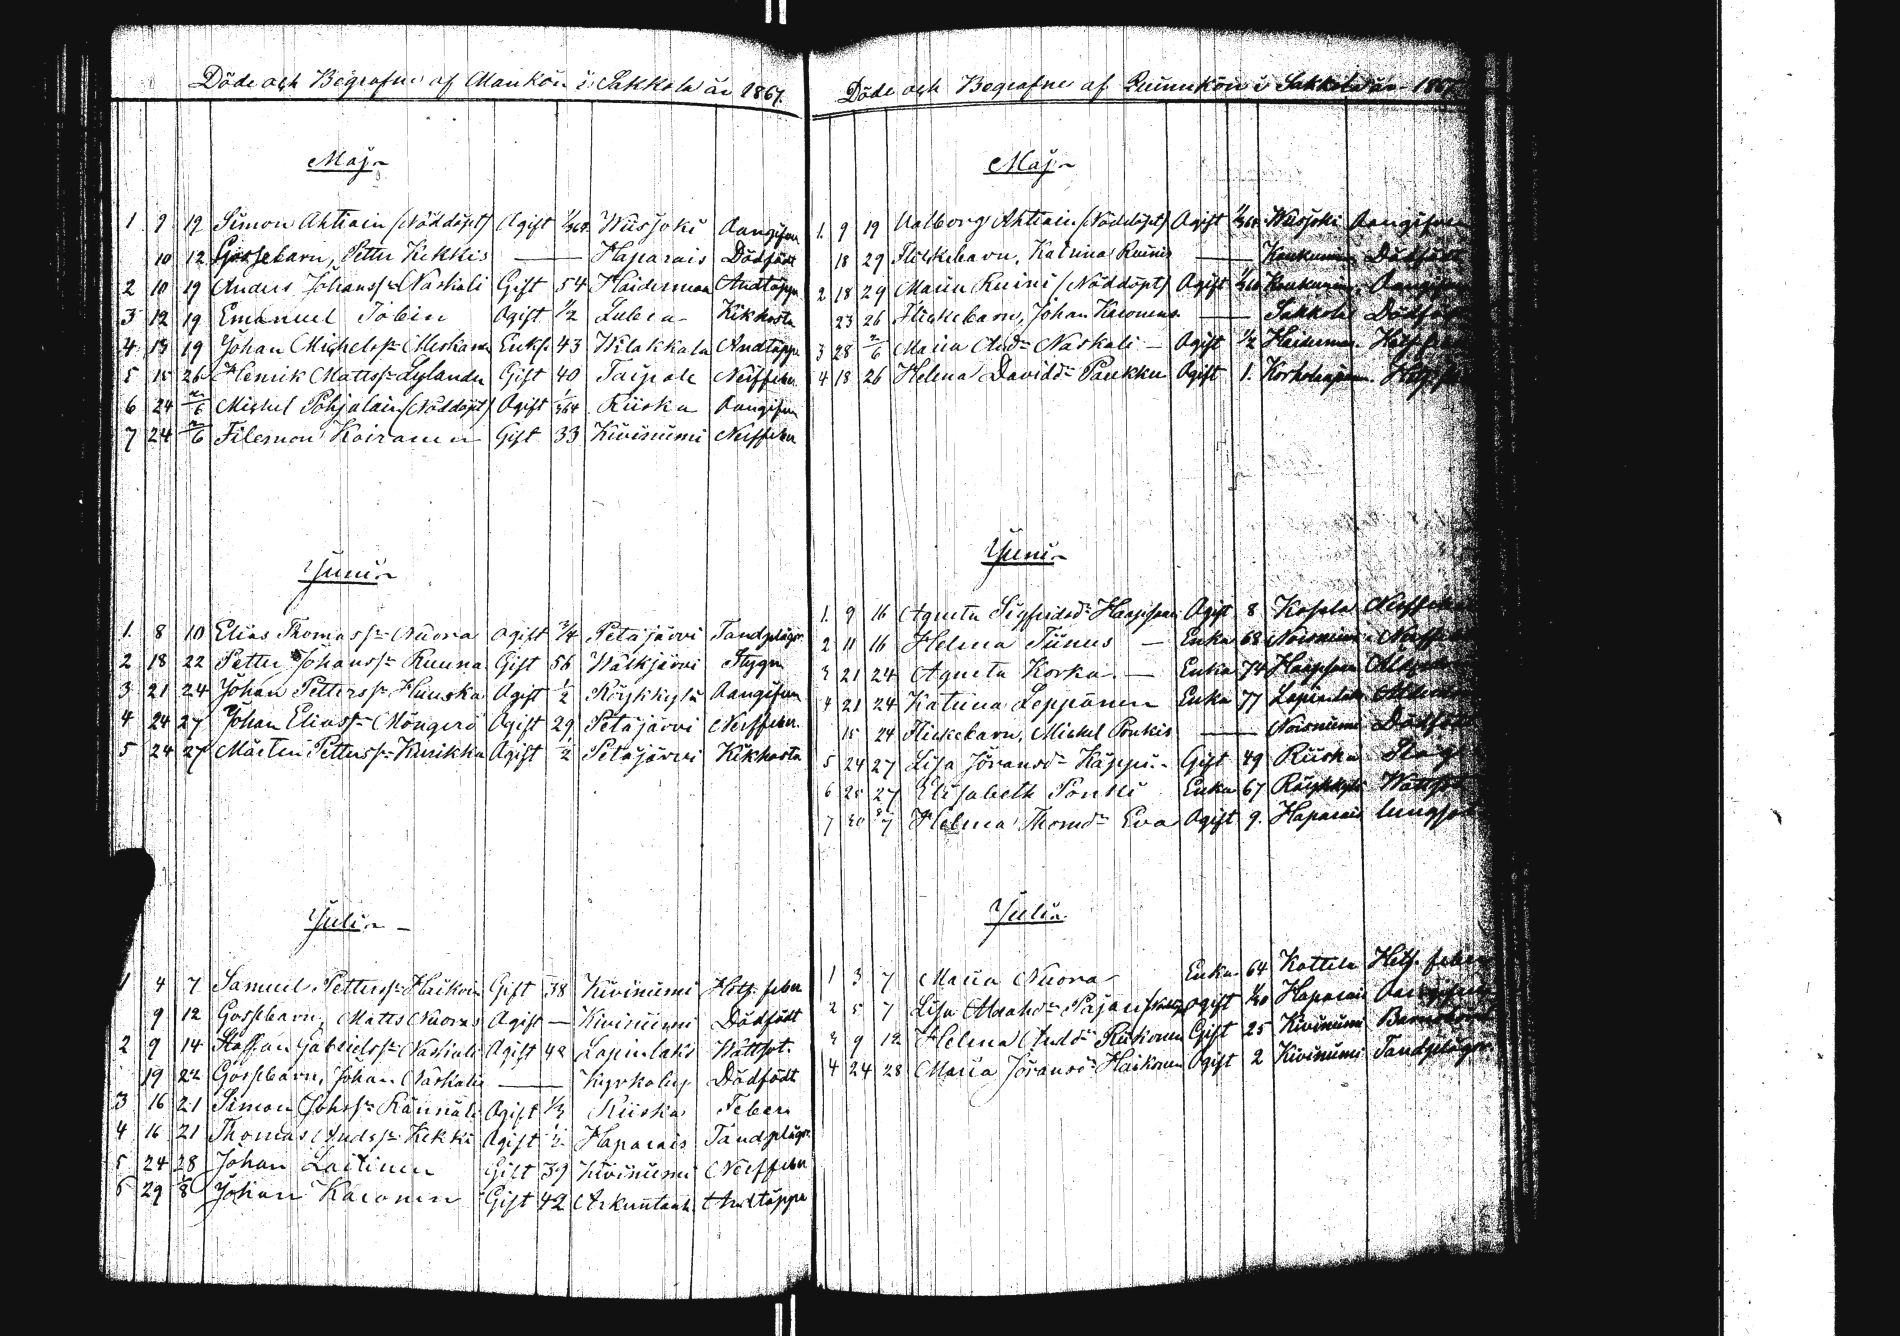 Döde och Begrafne af Mankön i Sakkola år 1867.
Maj
1 9 19 Simon Ahtiain (Nöddöpt) Ogift 1/364 Wiisjoki Oangifven
10 12 Gossebarn, Petter Kekkis — Haparais Dödfödt
2 10 19 Anders Johanss:n Naskali Gift 54 Haiderman Andtäppa
3 12 19 Emanuel Tobin Ogift 1/2 Lubia Kikhosta
4 13 19 Johan Michelss:n Meskan Enkl. 43 Wilakkala Andtäppa
5 15 26 Henrik Mattss:n Lylander Gift 40 Taipale Nerffeber
6 24 2/6 Michel Pohjalain (Nöddöpt) Ogift 1/364 Riiska Oangifven
7 24 2/6 Filemon Koiranen Gift 33 Kiviniemi Nerffeber
Juni
1 8 10 Elias Thomass:n Nuora Ogift 3/4 Petäjärvi Tandplågor
2 18 22 Petter Johanss:n Ruuna Gift 56 Wälkjärvi Stygn
3 21 24 Johan Petterss:n Huuska Ogift 1/2 Röykkylä Oangifven
4 24 27 Johan Eliass:n Möngerö Ogift 29 Petäjärvi Nerffeber
5 24 27 Mårten Petterss:n Kuisikka Ogift 1/2 Petäjärvi Kikhosta
Juli
1 4 7 Samuel Petterss:n Haikon Gift 38 Kiviniemi Hets. feber
9 12 Gossebarn, Matts Nuoras Ogift — Kiviniemi Dödfödt
2 9 14 Staffan Gabrielss:n Naskali Ogift 42 Lapinlaks Wattsot.
19 22 Gossebarn, Johan Naskalis — Kyrkoby Dödfödt
3 16 21 Simon Johss:n Rännäli Ogift 1/3 Riiska Feber
4 16 21 Thomas Andss:n Kekki Ogift 1/2 Haparais Tandplågor
5 24 28 Johan Laitinen Gift 39 Kiviniemi Nerffeber
6 29 /8 Johan Karonen Gift 42 Arkuntanh. Andtäppa
Döde och Begrafne af Quinnkön i Sakkola år 1867
Maj
1. 9 19 Valborg Ahtiain (Nöddöpt) Ogift 1/364 Wiisjoki Oangifven
18 29 Flickebarn, Katrina Ruinis — Dödfödt
2 18 29 Maria Ruini (Nöddöpt) Ogift Oangifven
23 26 Flickebarn, Johan Karonens — Sakkola Dödfödt
3 28 2/6 Maria Andd:r Naskali — Ogift 1/2 Haiderman
4 18 26 Helena Davidd:r Paukku Ogift 1.
Juni
1. 9 16 Agneta Sigfridsd:r Ogift 8 Kosela Nerffeber
2 11 16 Helena Tiinus — Enka 68 Noisniemi Nerffeber
3 21 24 Agneta Korka — Enka 74
4 21 24 Katrina Leppänen Enka 77 Lapinlaks
15 24 Flickebarn, Michel Poukis — Noisniemi Dödfödt
5 24 27 Lisa Jöransd:r Käppi Gift 49 Riiska
6 25 27 Elisabeth Pontti Enka 67 Röykkylä Wattsot
7 30 /7 Helena Thomd:r Eva Ogift 9. Haparais lungsot
Juli
1 3 7 Maria Nuora Enka 64 Kottila Hets. feber
2 5 7 Lisa Pajari Ogift 1/30 Haparais Oangifven
3 9 12 Helena Andd:r Riikonen Gift 25 Kiviniemi
4 24 28 Maria Jöransd:r Haikonen Ogift 2 Kiviniemi Tandplågor